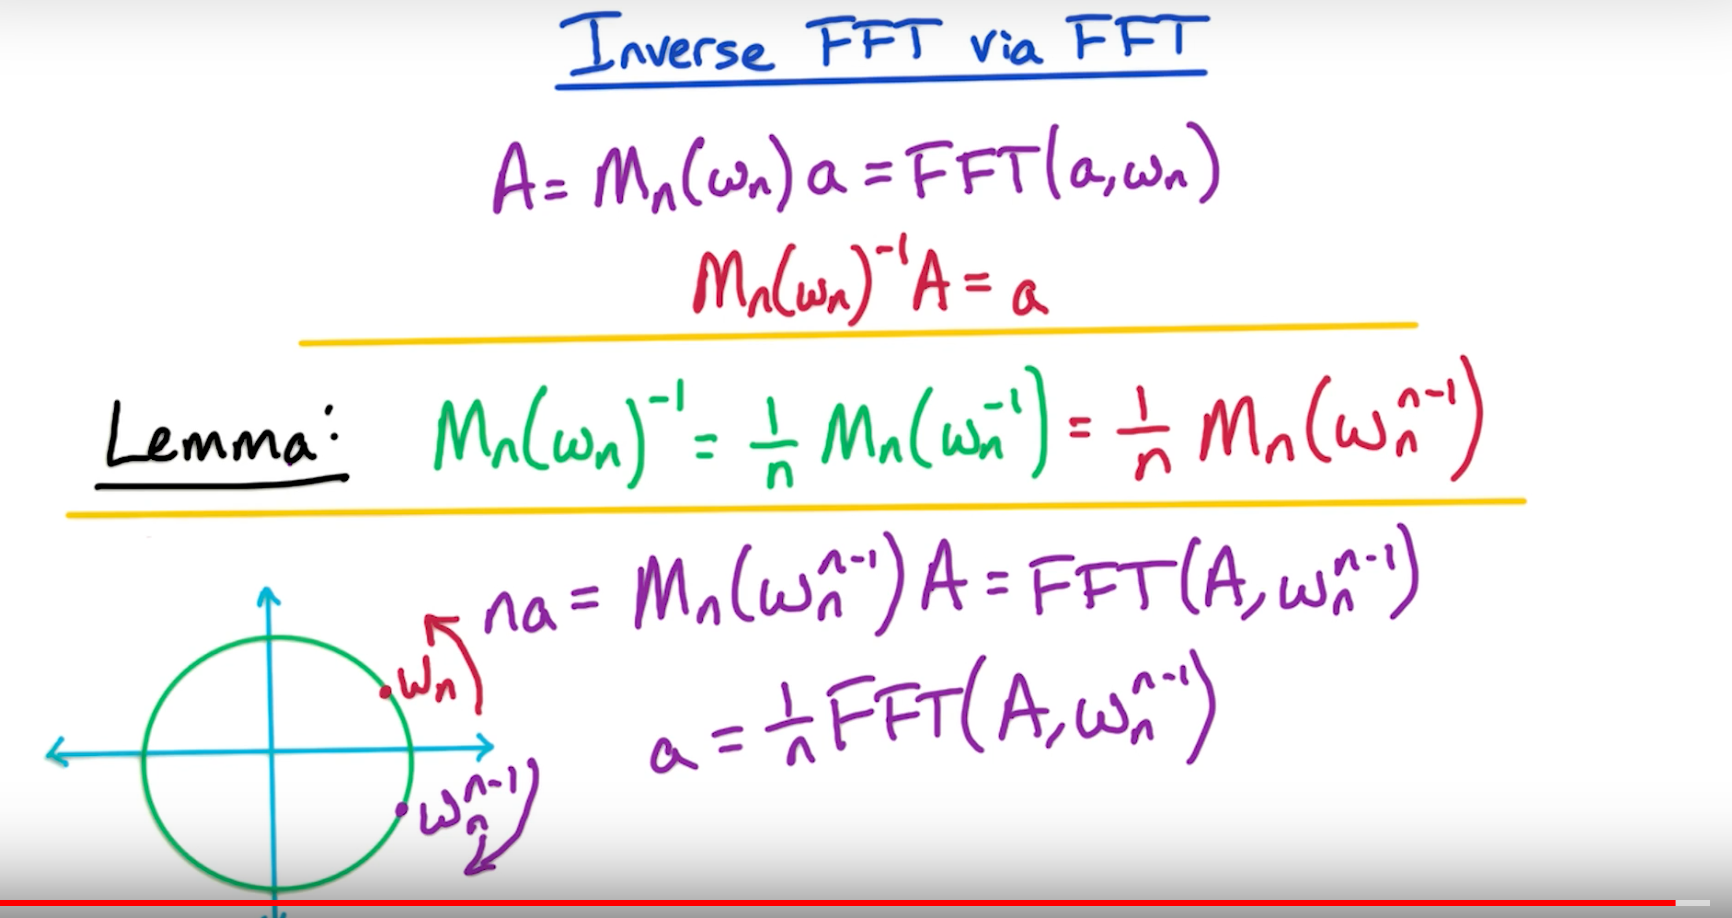 Inverse FFT via FFT
A = Mₙ(ωₙ) a = FFT(a, ωₙ)
Mₙ(ωₙ)⁻¹ A = a
Lemma: Mₙ(ωₙ)⁻¹ = 1/n Mₙ(ωₙ⁻¹) = 1/n Mₙ(ωₙⁿ⁻¹)
na = Mₙ(ωₙⁿ⁻¹) A = FFT(A, ωₙⁿ⁻¹)
ωₙ
a = 1/n FFT(A, ωₙⁿ⁻¹)
ωₙⁿ⁻¹